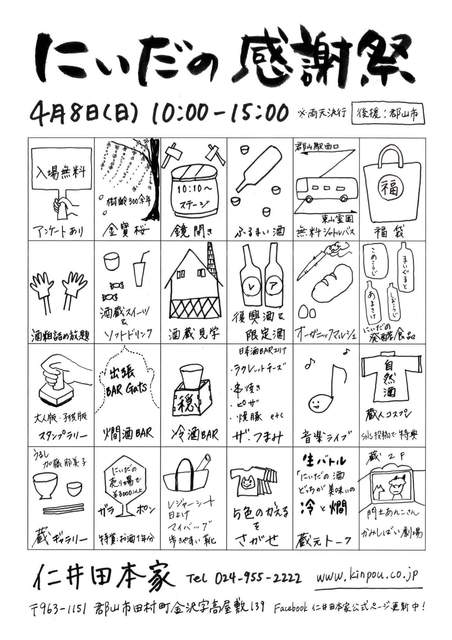 にいだの感謝祭
4月8日(日) 10:00-15:00 ※雨天決行 後援:郡山市
入場無料
アンケートあり
樹齢300余年
金寳桜
10:10〜
ステージ
鏡開き
ふるまい酒
郡山駅西口
東山霊園
無料シャトルバス
福
福袋
酒粕詰め放題
酒蔵スイーツ
&
ソフトドリンク
酒蔵見学
レ ア
復興酒&
限定酒
オーガニックマルシェ
こめこうじ
まいぐると
あまさけ
にいだの
発酵食品
大人版・子供版
スタンプラリー
出張
BAR Gats
燗酒BAR
穏
冷酒BAR
日本酒BARエリア
・ラクレットチーズ
・串焼き
・ピザ
・焼豚 etc
ザ・つまみ
音楽ライブ
自然酒
蔵人コスプレ
SNS投稿で特典
うるし
加藤那美子
蔵ギャラリー
にいだの
売り場で
¥3000以上
ガラポン
特賞:お酒1年分
レジャーシート
日よけ
マイバッグ
歩きやすい靴
5色のかえる
を
さがせ
生バトル
「にいだの酒
どっちが美味いの」
冷と燗
蔵元トーク
蔵2F
門土あんこさん
かみしばい劇場
仁井田本家 Tel 024-955-2222 www.kinpou.co.jp
〒963-1151 郡山市田村町金沢字高屋敷139 Facebook 仁井田本家公式ページ更新中!